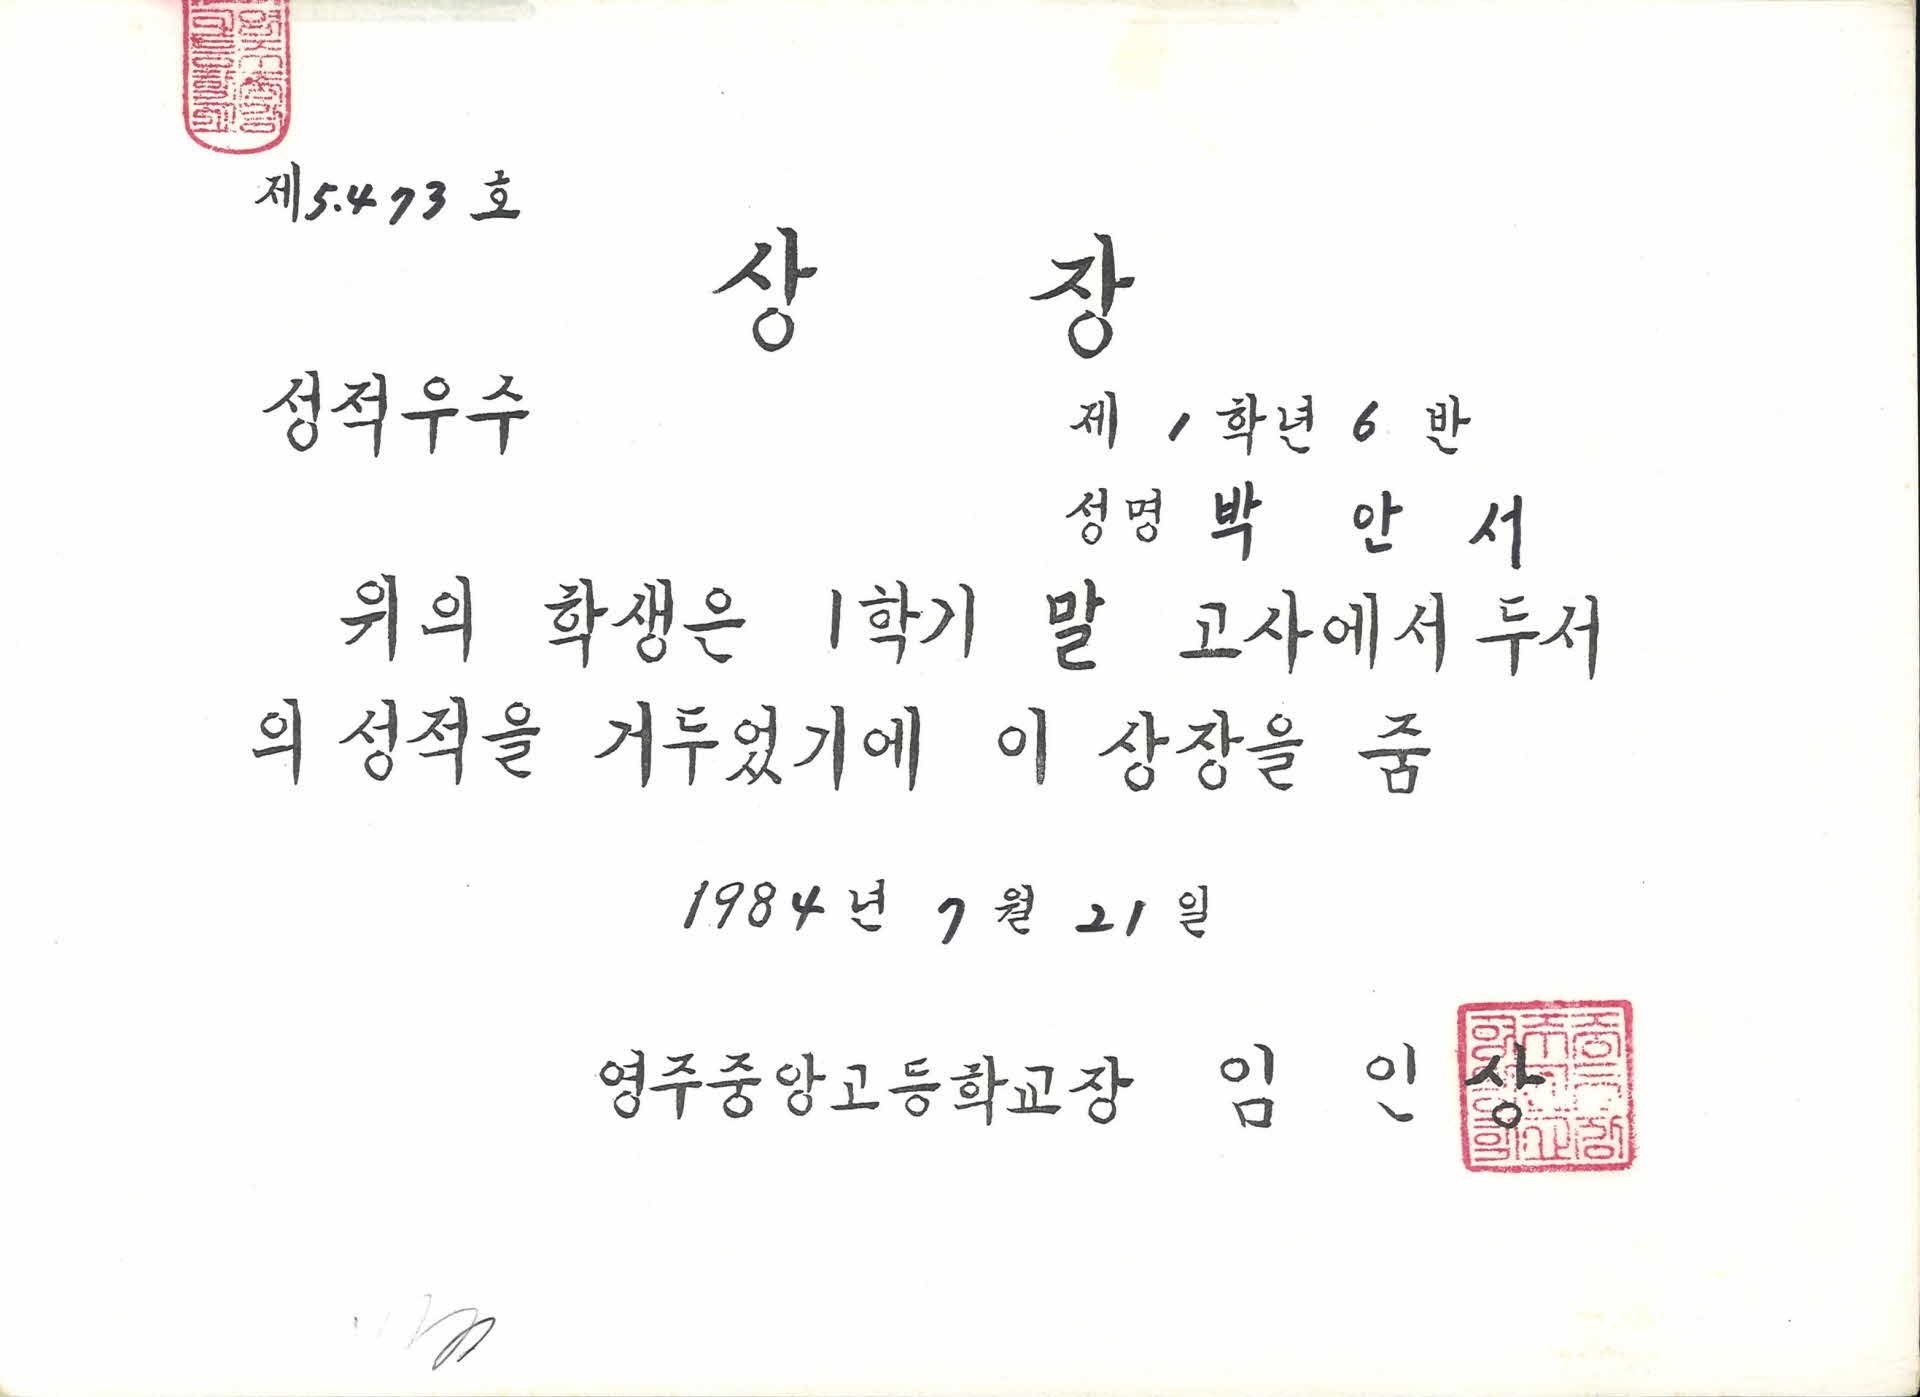 제5.473호
상 장
성적우수
제 1 학년 6 반
성명 박 안 서
위의 학생은 1학기 말 고사에서 두서
의 성적을 거두었기에 이 상장을 줌
1984년 7월 21일
영주중앙고등학교장 임 인 상